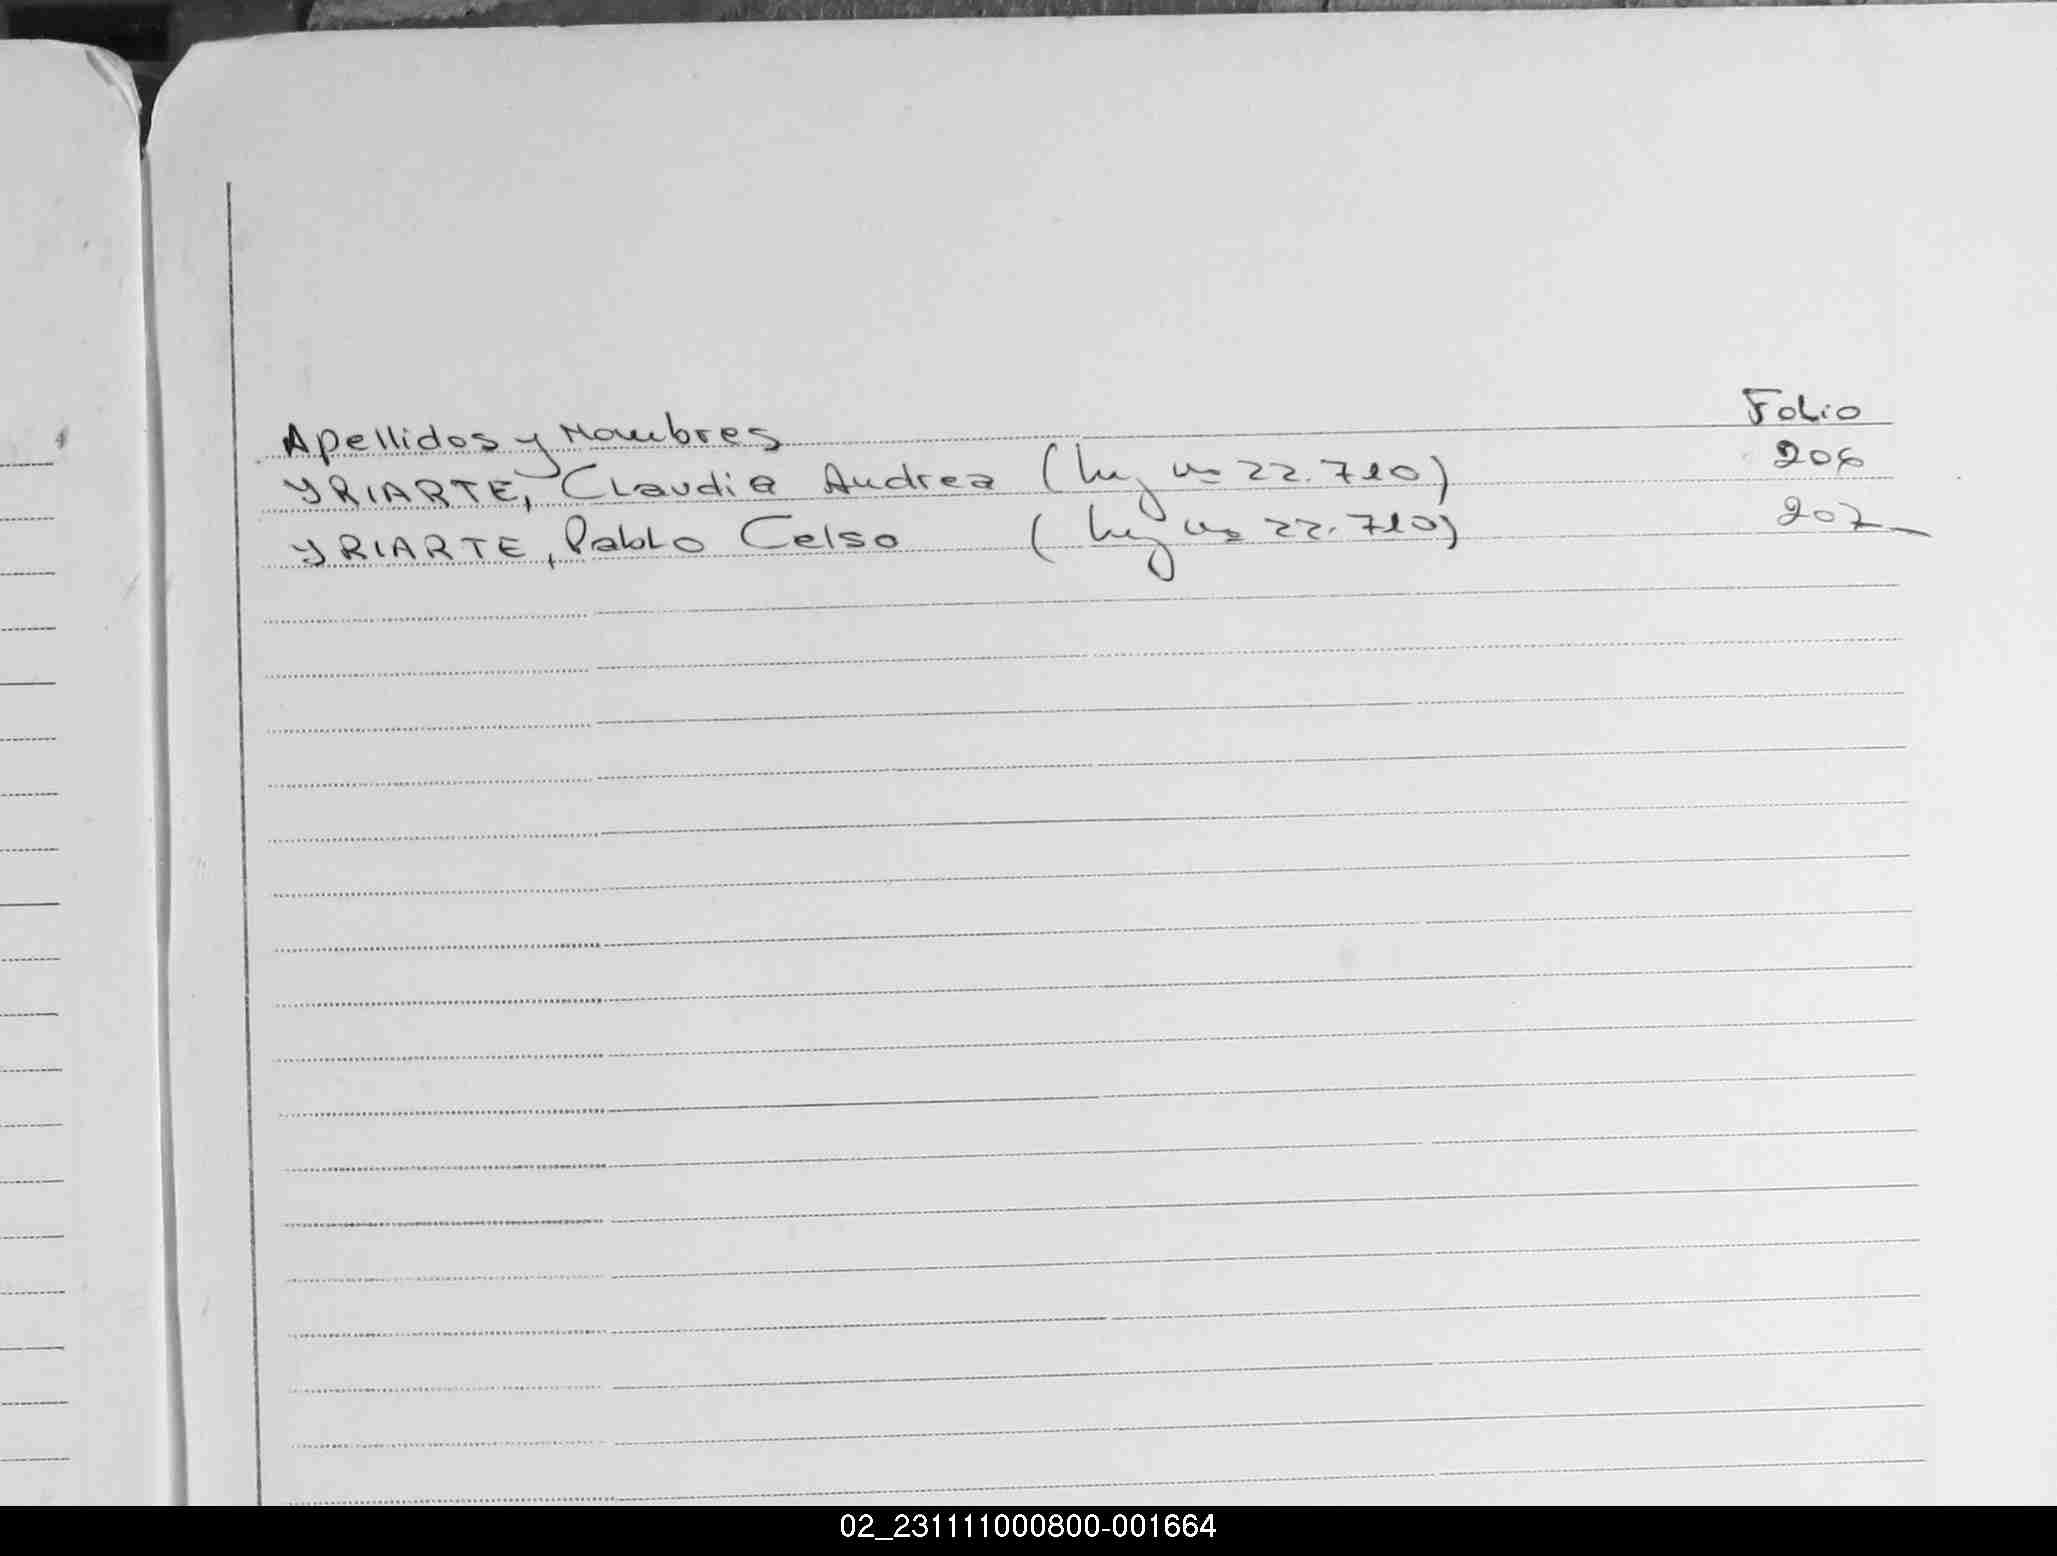 Apellidos y Nombres Folio
YRIARTE, Claudia Andrea (Ley nº 22.710) 206
YRIARTE, Pablo Celso (Ley nº 22.710) 207
02_231111000800-001664